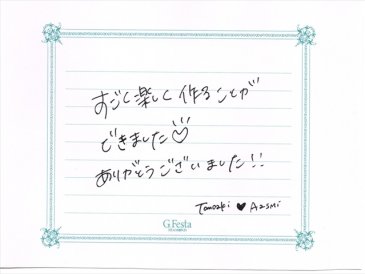 すごく楽しく作ることが
できました♡
ありがとうございました!!
Tomoaki ♥ Azumi
G.Festa